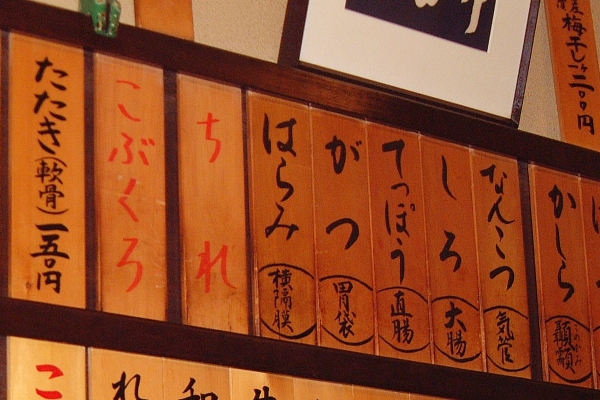 たたき(軟骨)一五〇円
こぶくろ
ちれ
はらみ 横隔膜
がつ 胃袋
てっぽう 直腸
しろ 大腸
なんこつ 気管
かしら 顳顬 こめかみ
梅干し 二〇〇円
こ
れ
和